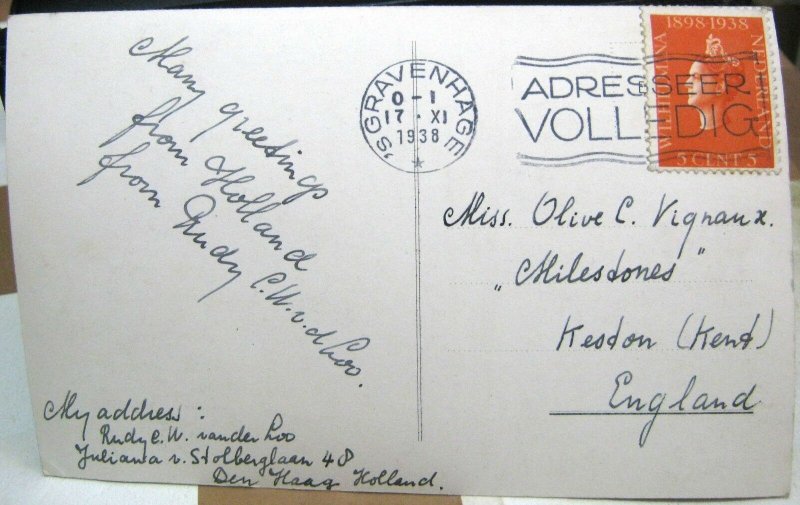 Many greetings
from Holland
from Rudy C.W. v.d. Loo.
My address:
Rudy C.W. van der Loo
Juliana v. Stolberglaan 48
Den Haag Holland.
'SGRAVENHAGE
0-1
17.XI
1938
ADRESSEER
VOLLEDIG
1898-1938
WILHELMINA
NEDERLAND
5 CENT 5
Miss. Olive C. Vignaux.
„Milestones”
Keston (Kent)
England